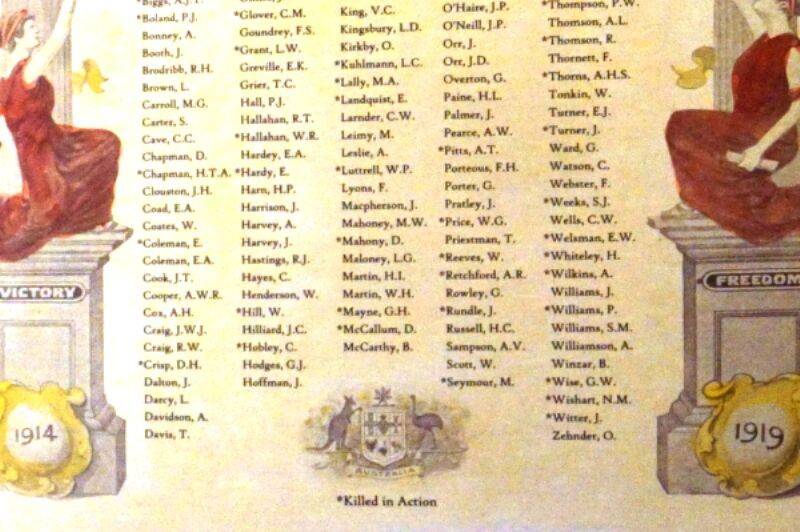 *Biggs, A.J.T.
*Boland, P.J.
Bonney, A.
Booth, J.
Brodribb, R.H.
Brown, L.
Carroll, M.G.
Carter, S.
Cave, C.C.
Chapman, D.
*Chapman, H.T.A.
Clouston, J.H.
Coad, E.A.
Coates, W.
*Coleman, E.
Coleman, E.A.
Cook, J.T.
Cooper, A.W.R.
Cox, A.H.
Craig, J.W.J.
Craig, R.W.
*Crisp, D.H.
Dalton, J.
Darcy, L.
Davidson, A.
Davis, T.
*Glover, C.M.
Goundrey, F.S.
*Grant, L.W.
Greville, E.K.
Grier, T.C.
Hall, P.J.
Hallahan, R.T.
*Hallahan, W.R.
Hardey, E.A.
*Hardy, E.
Harn, H.P.
Harrison, J.
Harvey, A.
Harvey, J.
Hastings, R.J.
Hayes, C.
Henderson, W.
*Hill, W.
Hilliard, J.C.
*Hobley, C.
Hodges, G.J.
Hoffman, J.
King, V.C.
Kingsbury, L.D.
Kirkby, O.
*Kuhlmann, L.C.
*Lally, M.A.
*Landquist, E.
Larnder, C.W.
Leimy, M.
Leslie, A.
*Luttrell, W.P.
Lyons, F.
Macpherson, J.
Mahoney, M.W.
*Mahony, D.
Maloney, L.G.
Martin, H.I.
Martin, W.H.
*Mayne, G.H.
*McCallum, D.
McCarthy, B.
O'Haire, J.P.
O'Neill, J.P.
Orr, J.
Orr, J.D.
Overton, G.
Paine, H.L.
Palmer, J.
Pearce, A.W.
*Pitts, A.T.
Porteous, F.H.
Porter, G.
Pratley, J.
*Price, W.G.
Priestman, T.
*Reeves, W.
*Retchford, A.R.
Rowley, G.
*Rundle, J.
Russell, H.C.
Sampson, A.V.
Scott, W.
*Seymour, M.
*Thompson, P.W.
Thomson, A.L.
*Thomson, R.
Thornett, F.
*Thorns, A.H.S.
Tonkin, W.
Turner, E.J.
*Turner, J.
Ward, G.
Watson, C.
Webster, F.
*Weeks, S.J.
Wells, C.W.
*Welsman, E.W.
*Whiteley, H.
*Wilkins, A.
Williams, J.
*Williams, P.
Williams, S.M.
Williamson, A.
Winzar, B.
*Wise, G.W.
*Wishart, N.M.
*Witter, J.
Zehnder, O.
VICTORY
1914
FREEDOM
1919
AUSTRALIA
*Killed in Action